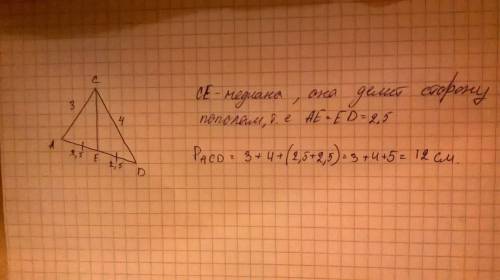 C
3
4
A
2,5
E
2,5
D
CE - медиана, она делит сторону
пополам, т.е AE = ED = 2,5
P ACD = 3 + 4 + (2,5+2,5) = 3 + 4 + 5 = 12 см.